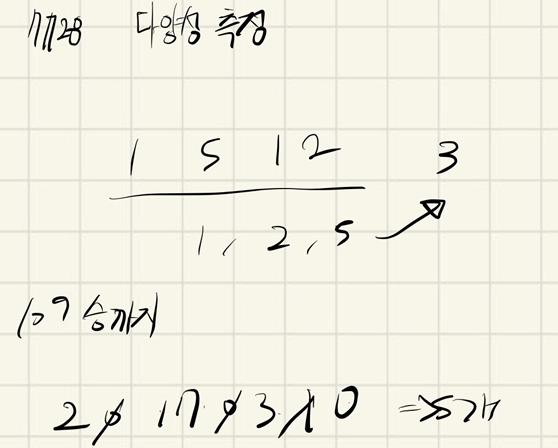 17128 다양성 측정
1 5 1 2 3
1, 2, 5
10 9 승까지
2 0 1 7 0 3 1 0 => 5개